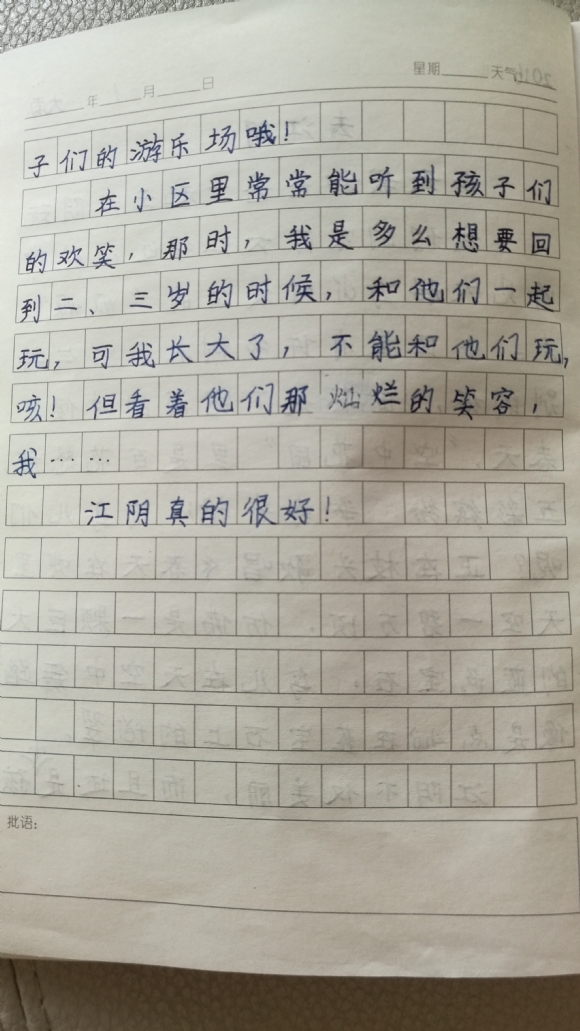 年 月 日 星期 天气
子们的游乐场哦！
在小区里常常能听到孩子们
的欢笑，那时，我是多么想要回
到二、三岁的时候，和他们一起
玩，可我长大了，不能和他们玩，
咳！但看着他们那灿烂的笑容，
我……
江阴真的很好！
批语：